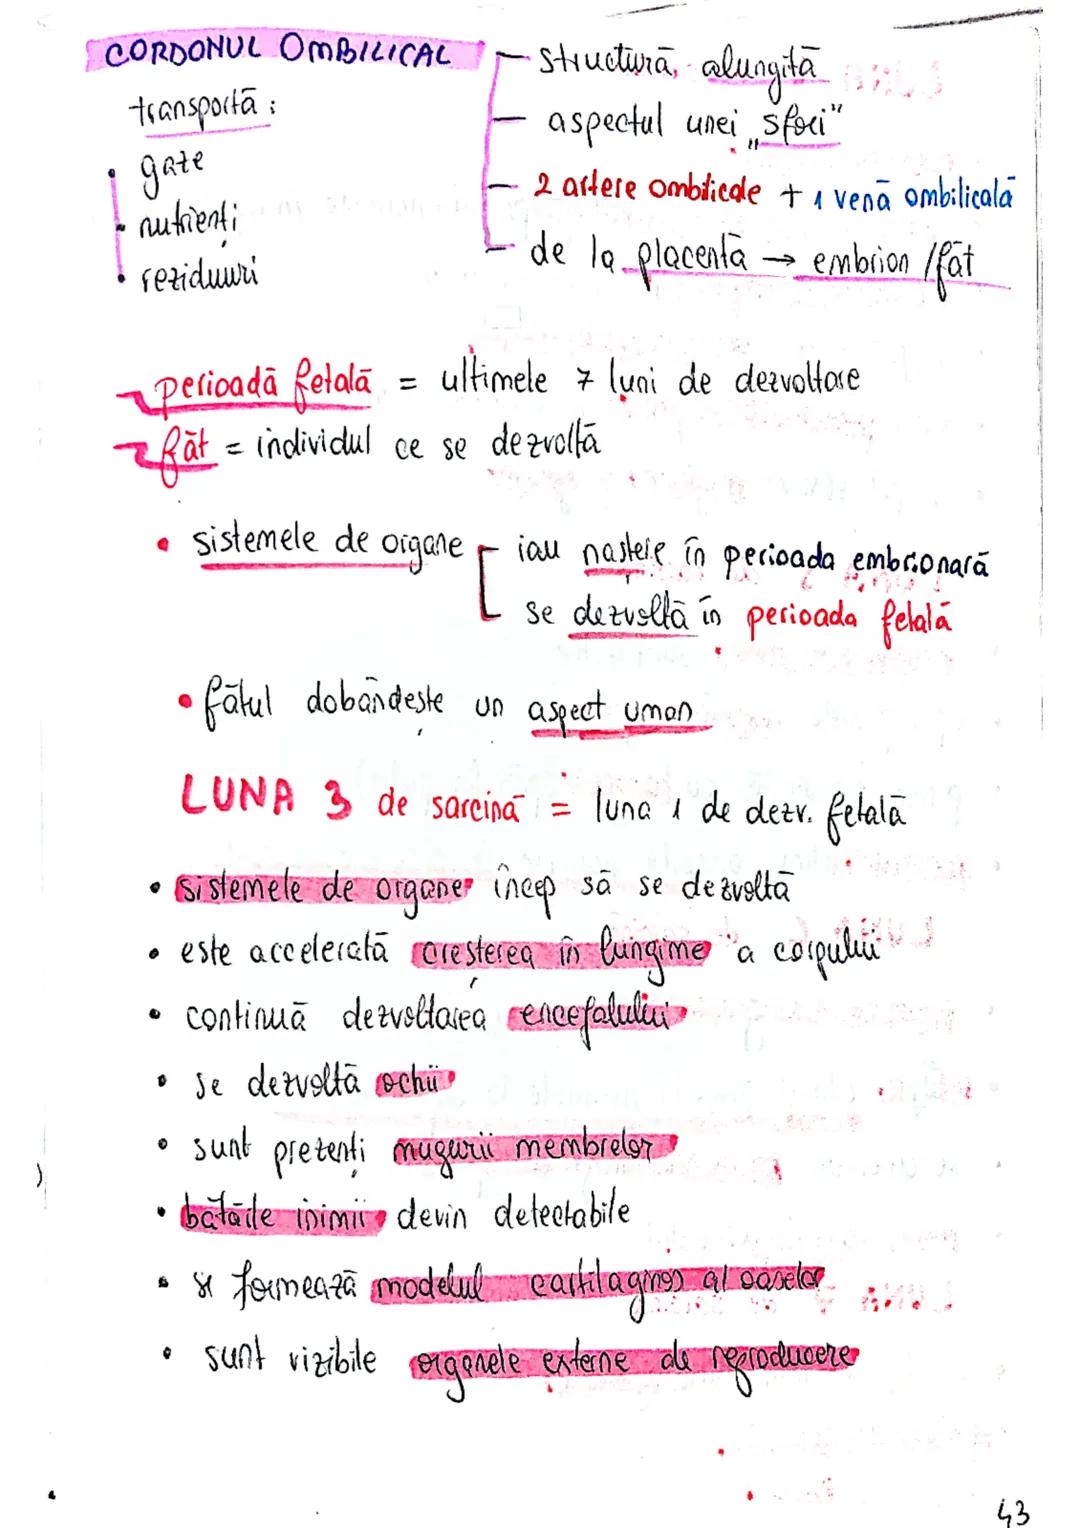 CORDONUL OMBILICAL
transportă:
• gaze
• nutrienți
• reziduuri
— structură alungită
— aspectul unei „sfori"
— 2 artere ombilicale + 1 venă ombilicală
— de la placentă → embrion / făt
perioadă fetală = ultimele 7 luni de dezvoltare
făt = individul ce se dezvoltă
• sistemele de organe
iau naștere în perioada embrionară
se dezvoltă în perioada fetală
• fătul dobândește un aspect uman
LUNA 3 de sarcină = luna 1 de dezv. fetală
• sistemele de organe încep să se dezvoltă
• este accelerată creșterea în lungime a corpului
• continuă dezvoltarea encefalului
• se dezvoltă ochii
• sunt prezenți mugurii membrelor
• bătăile inimii devin detectabile
• se formează modelul cartilaginos al oaselor
• sunt vizibile organele externe de reproducere
43